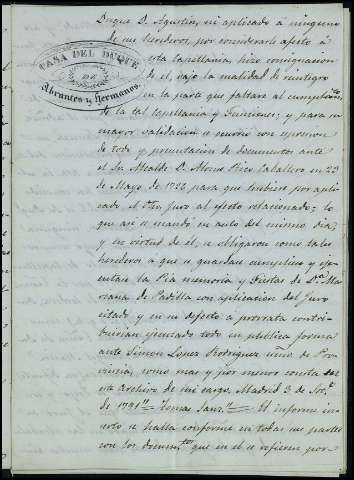 Duque D. Agustin, ni aplicado á ninguno
de sus herederos, por considerarle afecto á
esta Capellania, hizo consignacion
de él, bajo la calidad de reintegro
en la parte que faltare al cumplimto.
de la tal Capellania y Funciones; y para su
mayor validacion se ocurrió con expresion
de todo y presentacion de documentos ante
el Sr. Alcalde D. Alonso Rico Caballero en 23
de Mayo de 1726 para que hubiese por apli-
cado el Juro al efecto relacionado; lo
que asi se mandó en auto del mismo dia;
y en virtud de él, se obligaron como tales
herederos á que se guardase cumpliese y eje-
cutase la Pia memoria y Fiestas de Da. Ma-
riana de Padilla con aplicacion del Juro
citado y en su defecto á prorata contri-
buirian ejecutado todo en publica forma
ante Simon Lopez Rodriguez de Pro-
vincia, como mas y por menor consta
este Archivo de mi cargo. Madrid 3 de
de 1791. Tomas Sanz. El informe in-
serto se halla conforme en todas sus partes
con los docum.tos que en él se refieren por
CASA DEL DUQUE
DE
Abrantes y Hermanos.